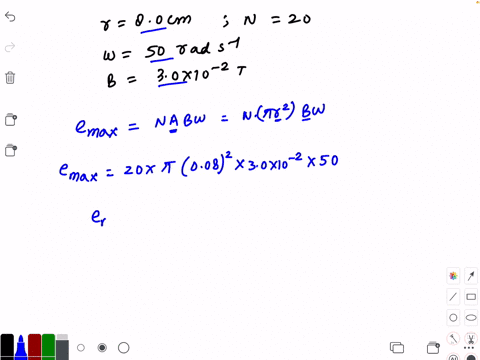 r = 8.0 cm ; N = 20
w = 50 rad s⁻¹
B = 3.0×10⁻² T
e_max = NABW = N·(πr²) BW
e_max = 20 × π (0.08)² × 3.0×10⁻² × 50
e